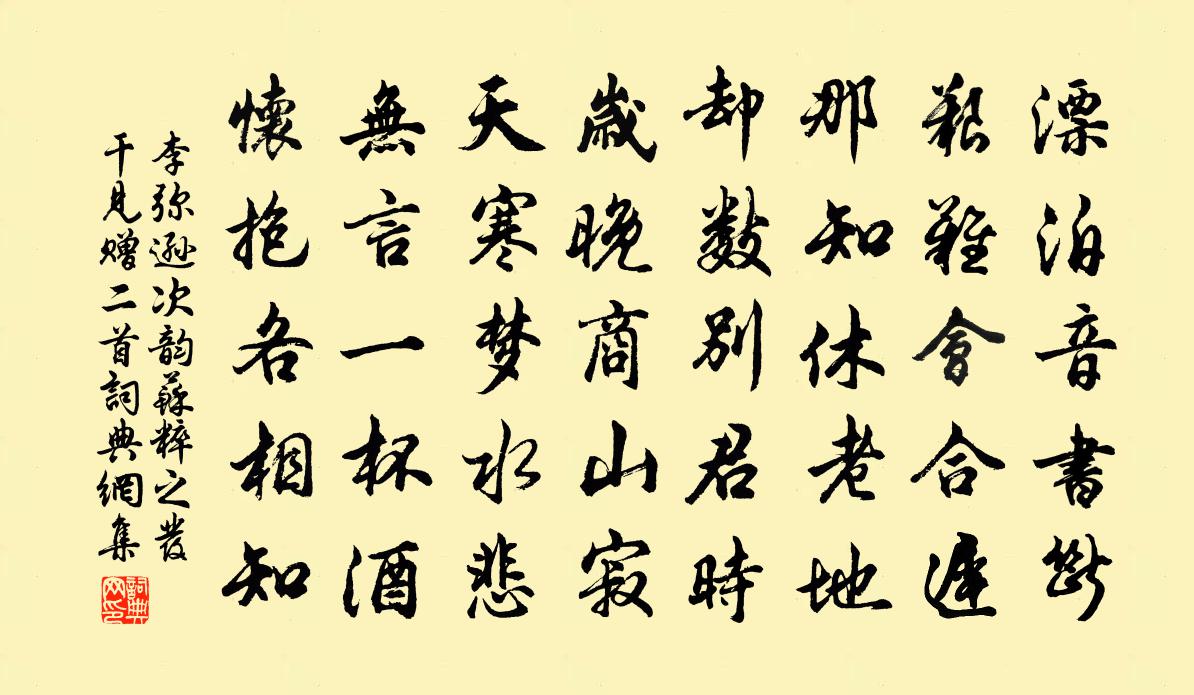 漂泊音書斷
艱難會合遲
那知休老地
却數別君時
歲晚商山寂
天寒梦水悲
無言一杯酒
懷抱各相知
李弥遜次韵蘇粹之發
干見贈二首詞典網集
詞典网印